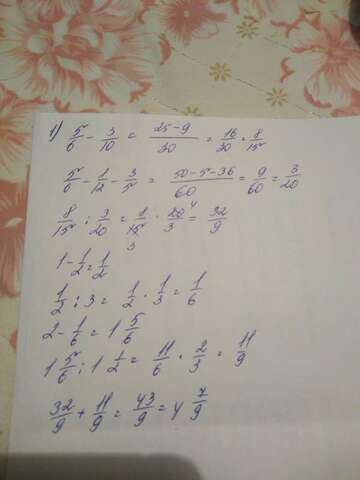 1) 5/6 - 3/10 = 25-9/30 = 16/30 = 8/15
5/6 - 1/12 - 3/5 = 50-5-36/60 = 9/60 = 3/20
8/15 : 3/20 = 8/15 3 · 20/3 4 = 32/9
1 - 1/2 = 1/2
1/2 : 3 = 1/2 · 1/3 = 1/6
2 - 1/6 = 1 5/6
1 5/6 : 1 1/2 = 11/6 · 2/3 = 11/9
32/9 + 11/9 = 43/9 = 4 7/9